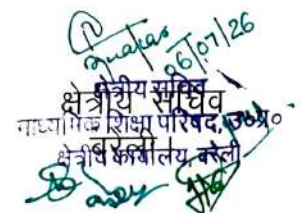 06/07/26
क्षेत्रीय सचिव
क्षेत्रीय सचिव
माध्यमिक शिक्षा परिषद, उ०प्र०
बरेली ।
क्षेत्रीय कार्यालय, बरेली